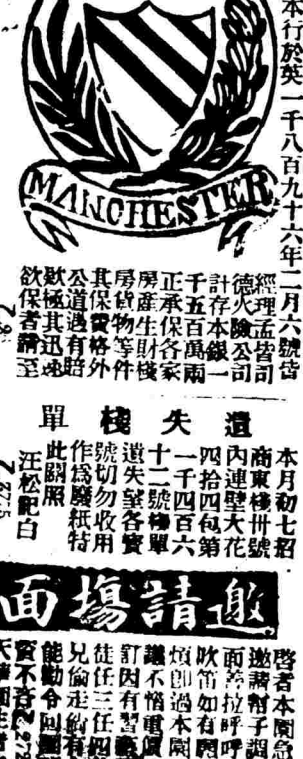 本行於英一千八百九十六年二月六號皆
MANCHESTER
經理孟皆司
德火險公司
計存本銀一
千五百萬兩
正承保各家
房產生財棧
房貨物等件
其保費格外
公道遇有賠
款極其迅速
欲保者請至
遺失棧單
本月初七招
商東棧卅號
內連壁大花
四拾四包第
一千四百六
十二號棧單
遺失望各寶
號切勿收用
作爲廢紙特
此關照
汪松記白
邀請塲面
啓者本園急
邀請幇子調
面善拉呼呼
吹笛如有
煩卽過本園
議不惜重
訂因有習
徒任三任四
兒偷走
能勸令回
不吝